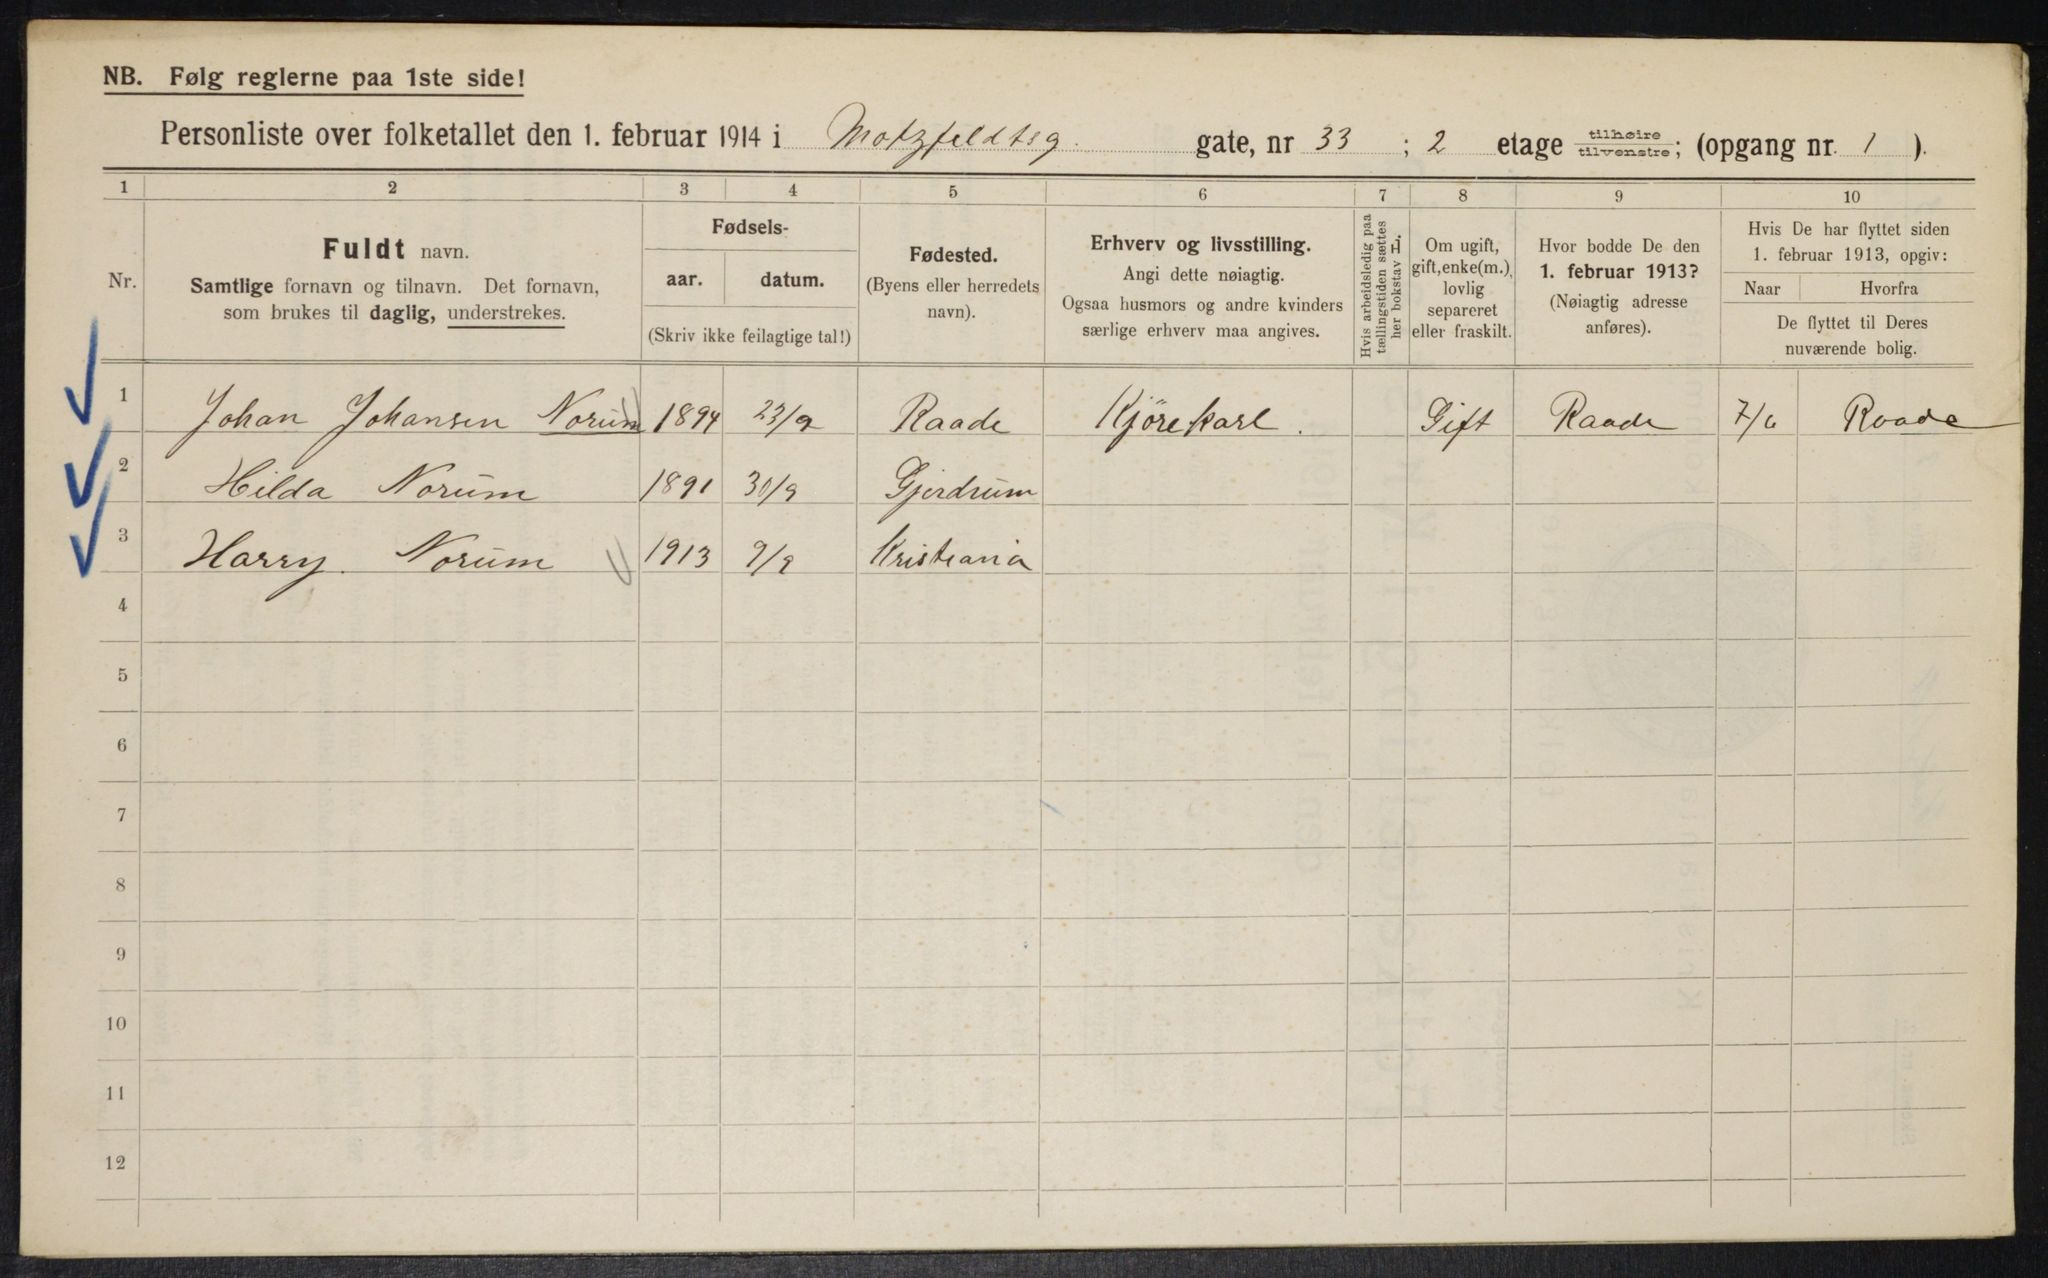 NB. Følg reglerne paa 1ste side!
Personliste over folketallet den 1. februar 1914 i Motzfeldtsg. gate, nr 33 ; 2 etage tilhøire/tilvenstre; (opgang nr. 1 ).
1 2 3 4 5 6 7 8 9 10
Nr.
Fuldt navn.
Samtlige fornavn og tilnavn. Det fornavn,
som brukes til daglig, understrekes.
Fødsels-
aar. datum.
(Skriv ikke feilagtige tal!)
Fødested.
(Byens eller herredets
navn).
Erhverv og livsstilling.
Angi dette nøiagtig.
Ogsaa husmors og andre kvinders
særlige erhverv maa angives.
Hvis arbeidsledig paa
tællingstiden sættes
her bokstav L.
Om ugift,
gift, enke(m.),
lovlig
separeret
eller fraskilt.
Hvor bodde De den
1. februar 1913?
(Nøiagtig adresse
anføres).
Hvis De har flyttet siden
1. februar 1913, opgiv:
Naar Hvorfra
De flyttet til Deres
nuværende bolig.
1 Johan Johansen Norum 1894 23/9 Raade Kjørekarl. Gift Raade 7/6 Raade
2 Hilda Norum 1891 30/9 Gjerdrum
3 Harry. Norum 1913 9/9 Kristiania
4
5
6
7
8
9
10
11
12